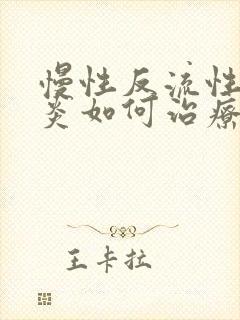 慢性反流性
炎如何治療
王卡拉